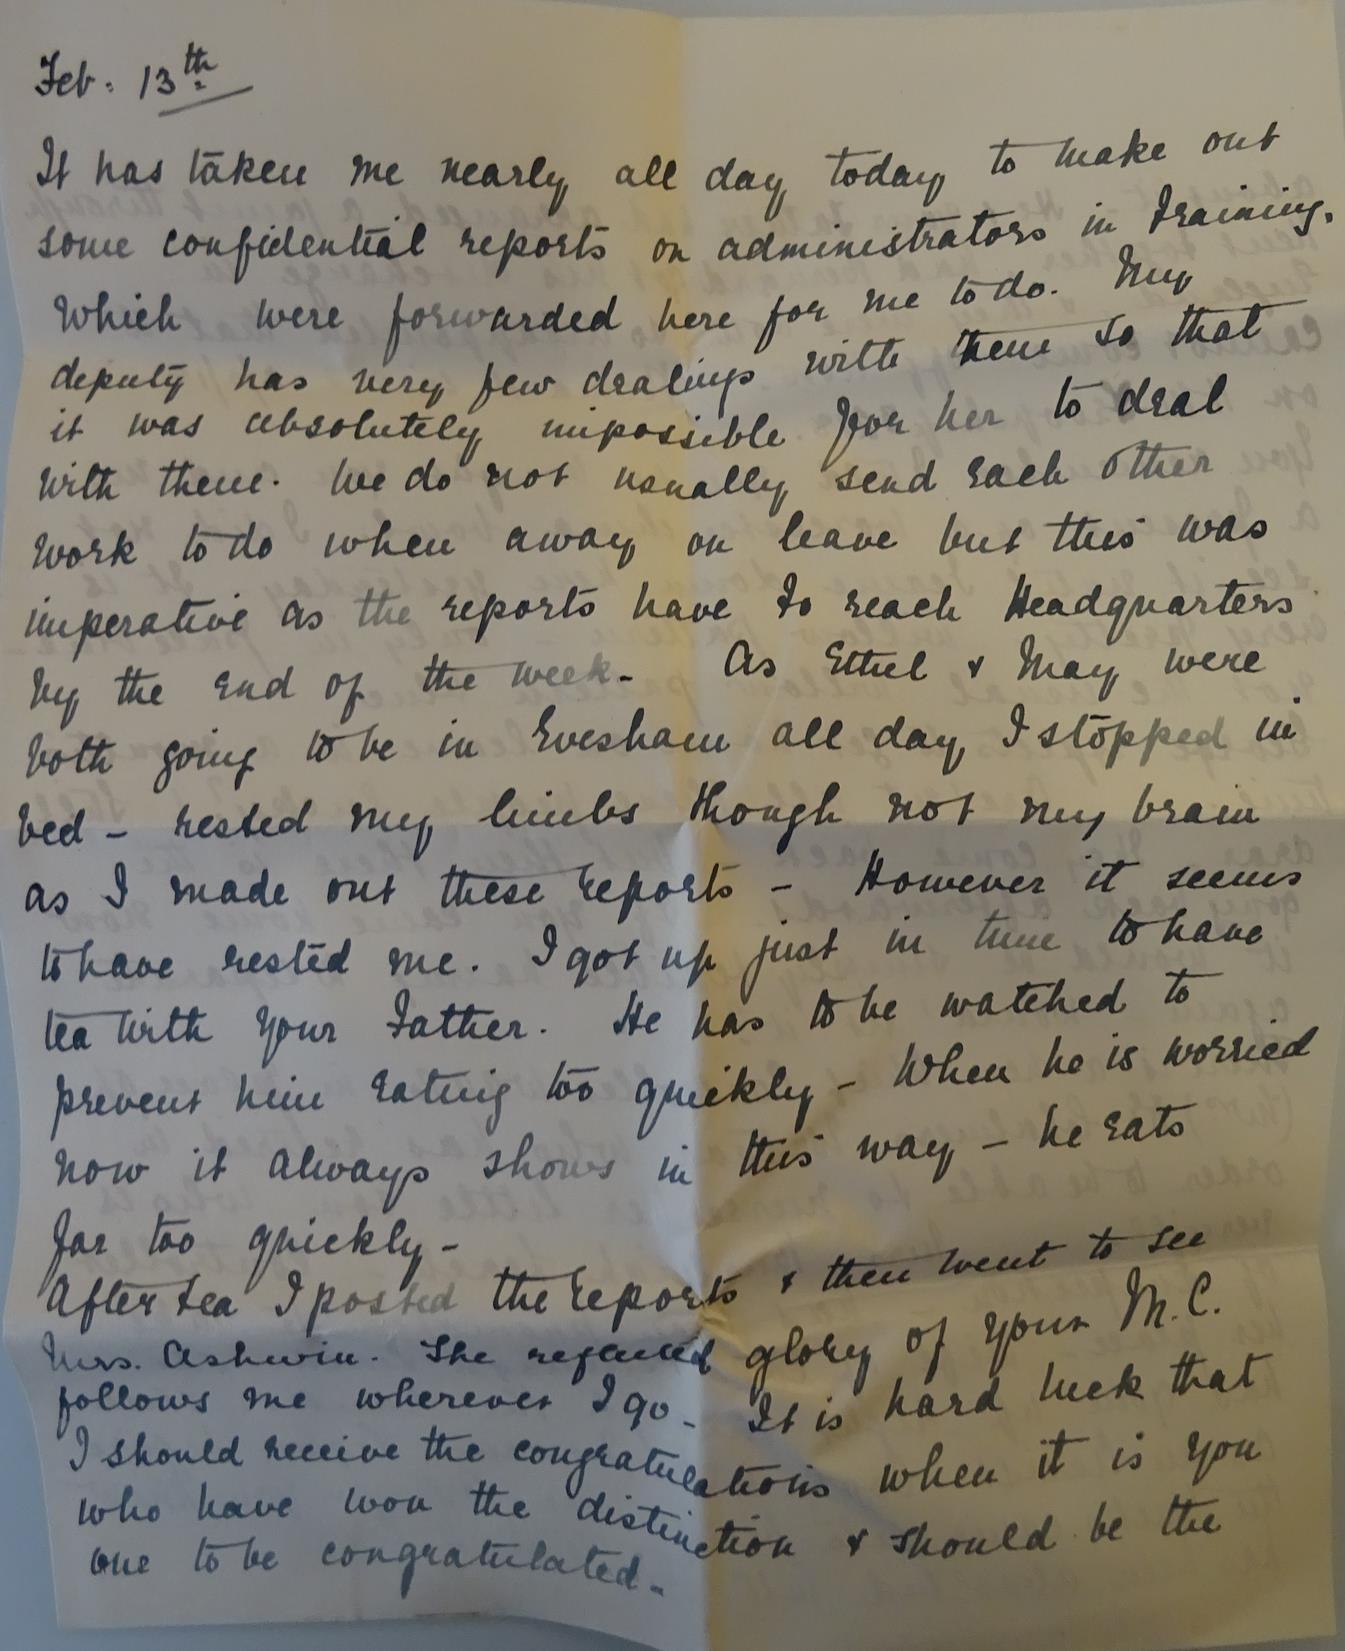 Feb: 13th
It has taken me nearly all day today to make out
some confidential reports on administrators in Training,
which were forwarded here for me to do. My
deputy has very few dealings with them so that
it was absolutely impossible for her to deal
with them. We do not usually send each other
work to do when away on leave but this was
imperative as the reports have to reach Headquarters
by the end of the week- As Ethel & May were
both going to be in Evesham all day, I stopped in
bed - rested my limbs though not my brain
as I made out these reports - However it seems
to have rested me. I got up just in time to have
tea with your Father. He has to be watched to
prevent him eating too quickly - When he is worried
now it always shows in this way - he eats
far too quickly -
After tea I posted the reports & then went to see
Mrs. Ashwin. The reflected glory of your M.C.
follows me wherever I go - It is hard luck that
I should receive the congratulations when it is you
who have won the distinction & should be the
one to be congratulated -